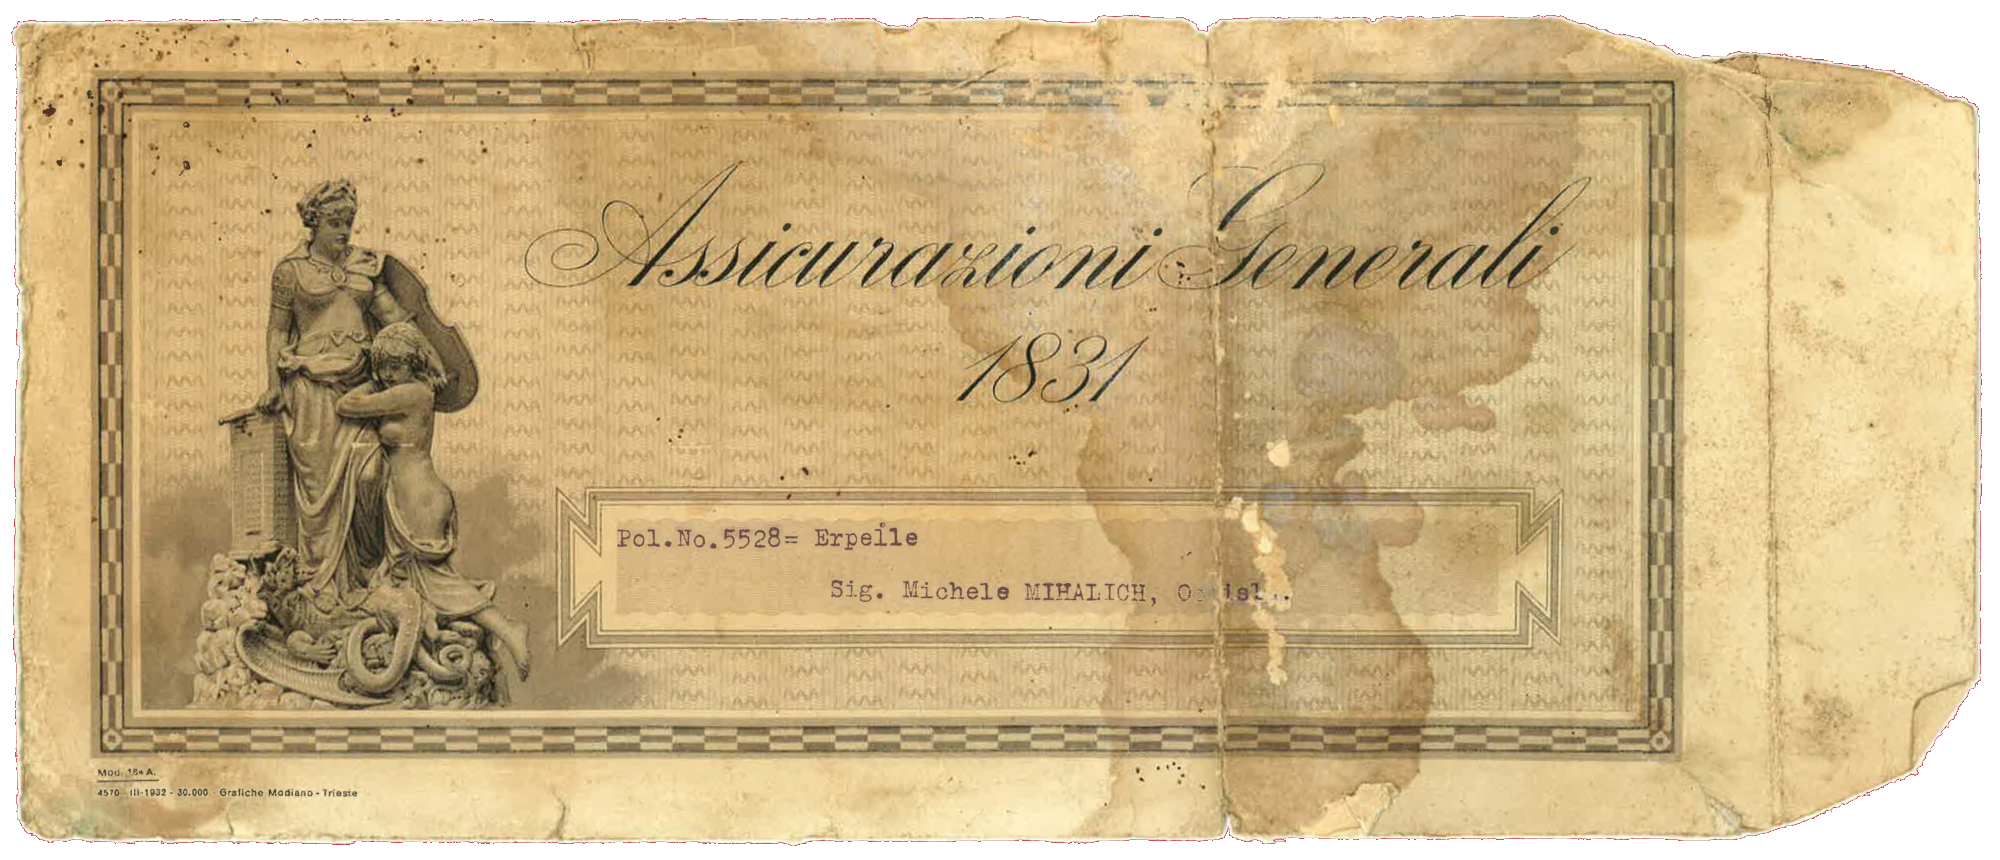 Assicurazioni Generali
1831
Pol.No.5528= Erpelle
Sig. Michele MIHALICH,
Mod. 18 A.
4570 III-1932 - 30.000 Grafiche Modiano - Trieste